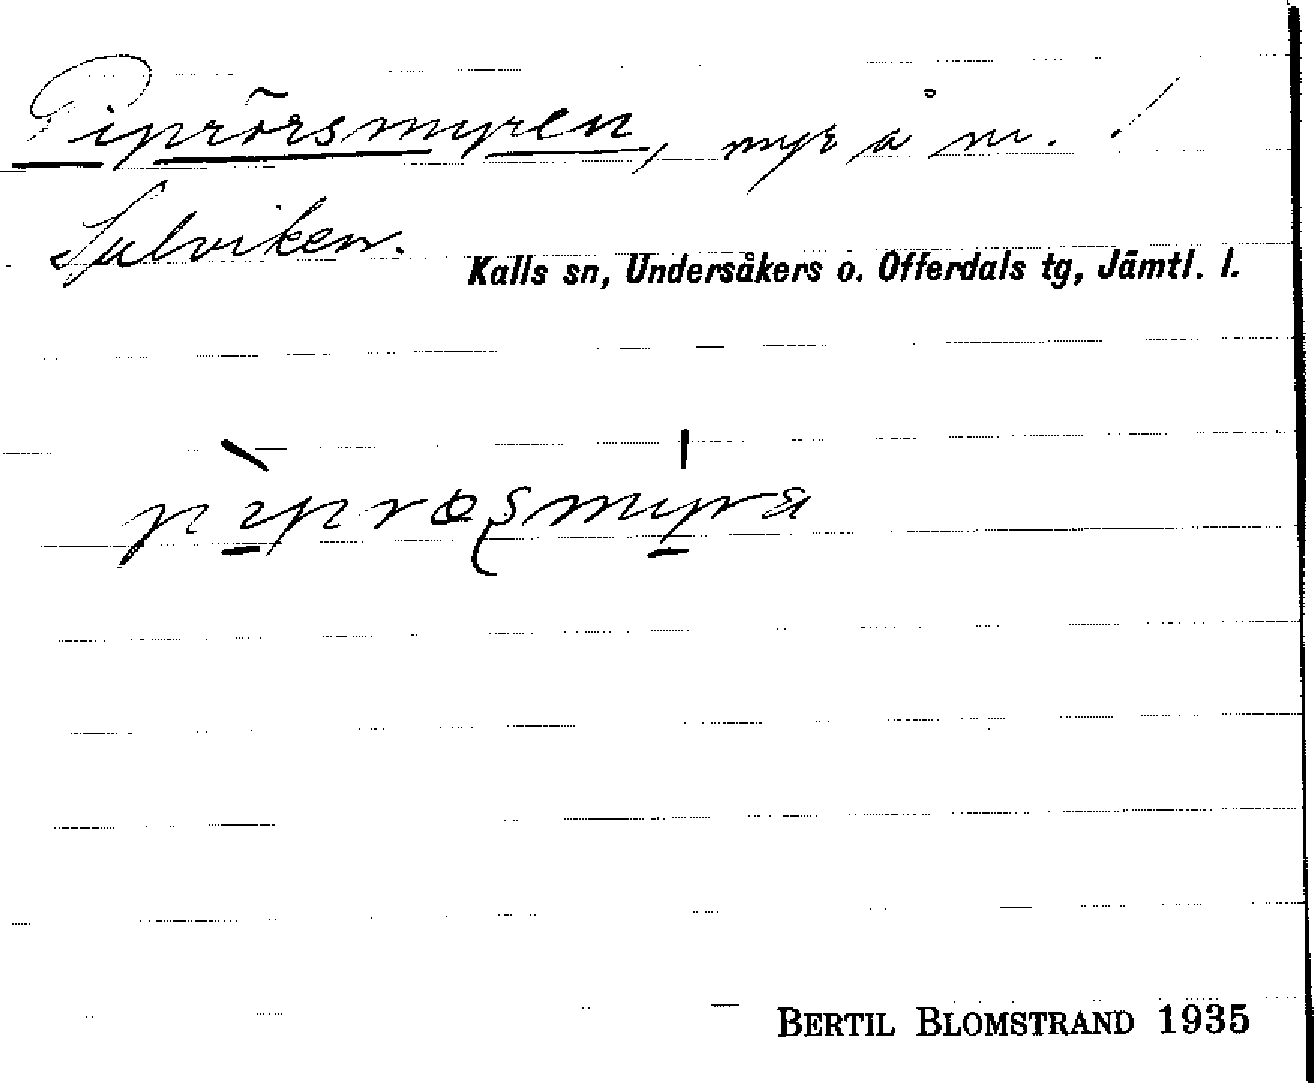 Piprörsmyren, myr å nv. !
Sulviken.
Kalls sn, Undersåkers o. Offerdals tg, Jämtl. l.
BERTIL BLOMSTRAND 1935